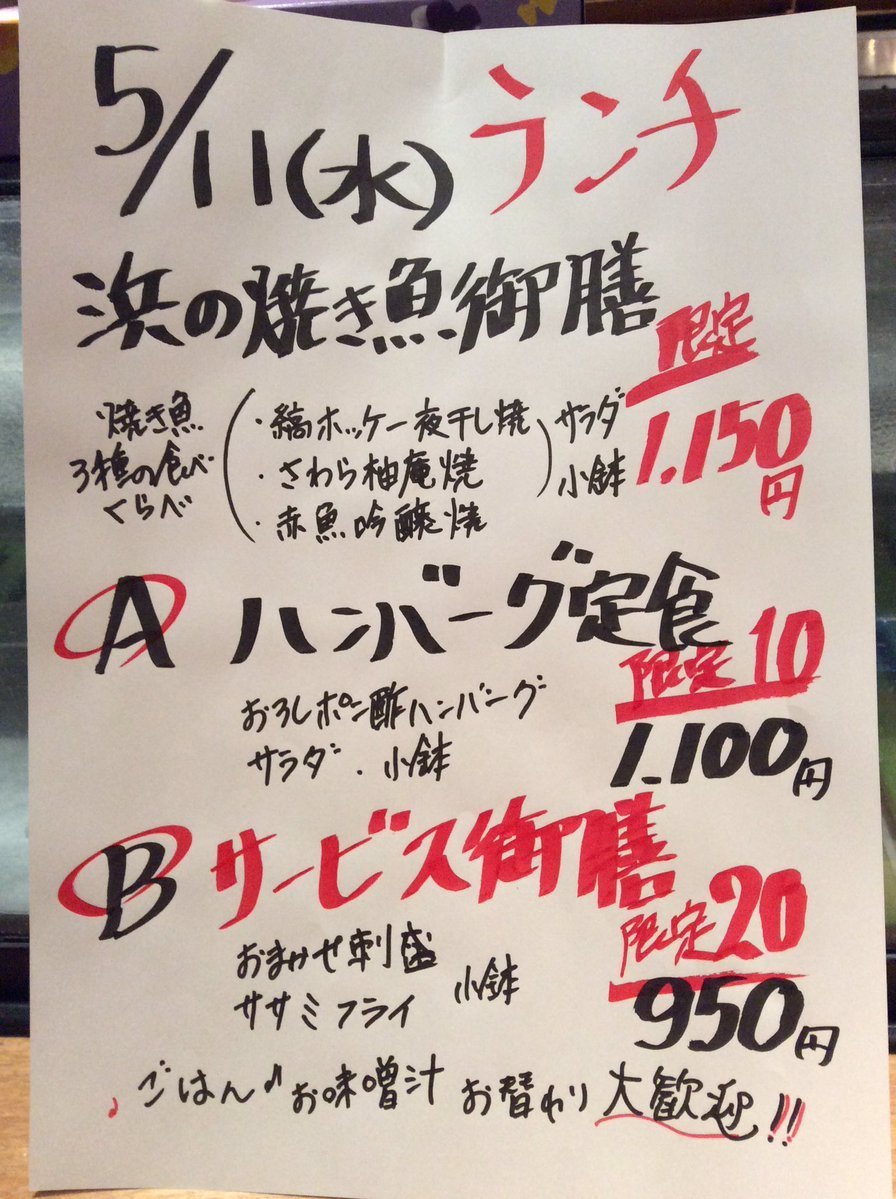 5/11(水) ランチ
浜の焼き魚御膳
限定
1,150円
焼き魚
3種の食べ
くらべ
・縞ホッケ一夜干し焼
・さわら柚庵焼
・赤魚吟醸焼
サラダ
小鉢
A ハンバーグ定食
限定10
おろしポン酢ハンバーグ
サラダ・小鉢
1,100円
B サービス御膳
限定20
おまかせ刺盛
ササミフライ
小鉢
950円
♪ごはん♪お味噌汁 お替わり 大歓迎!!